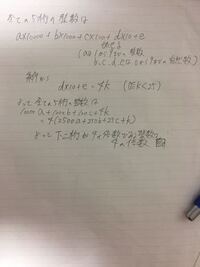 全ての5桁の整数は
a×10000+b×1000+c×100+d×10+e
(aは1〜9までの整数
b.c.d.eは0〜9までの
d×10+e=4k (0≦k<25)
よって全ての5桁の整数は
10000a+1000b+100c+4k
=4(2500a+250b+25c+k)
よって下二桁が4の倍数である整数は
4の倍数